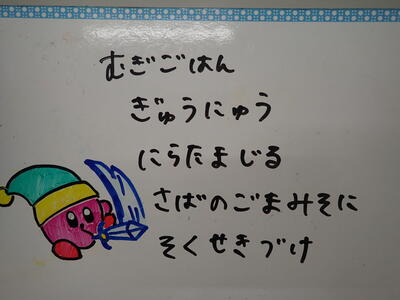 むぎごはん
ぎゅうにゅう
にらたまじる
さばのごまみそに
そくせきづけ